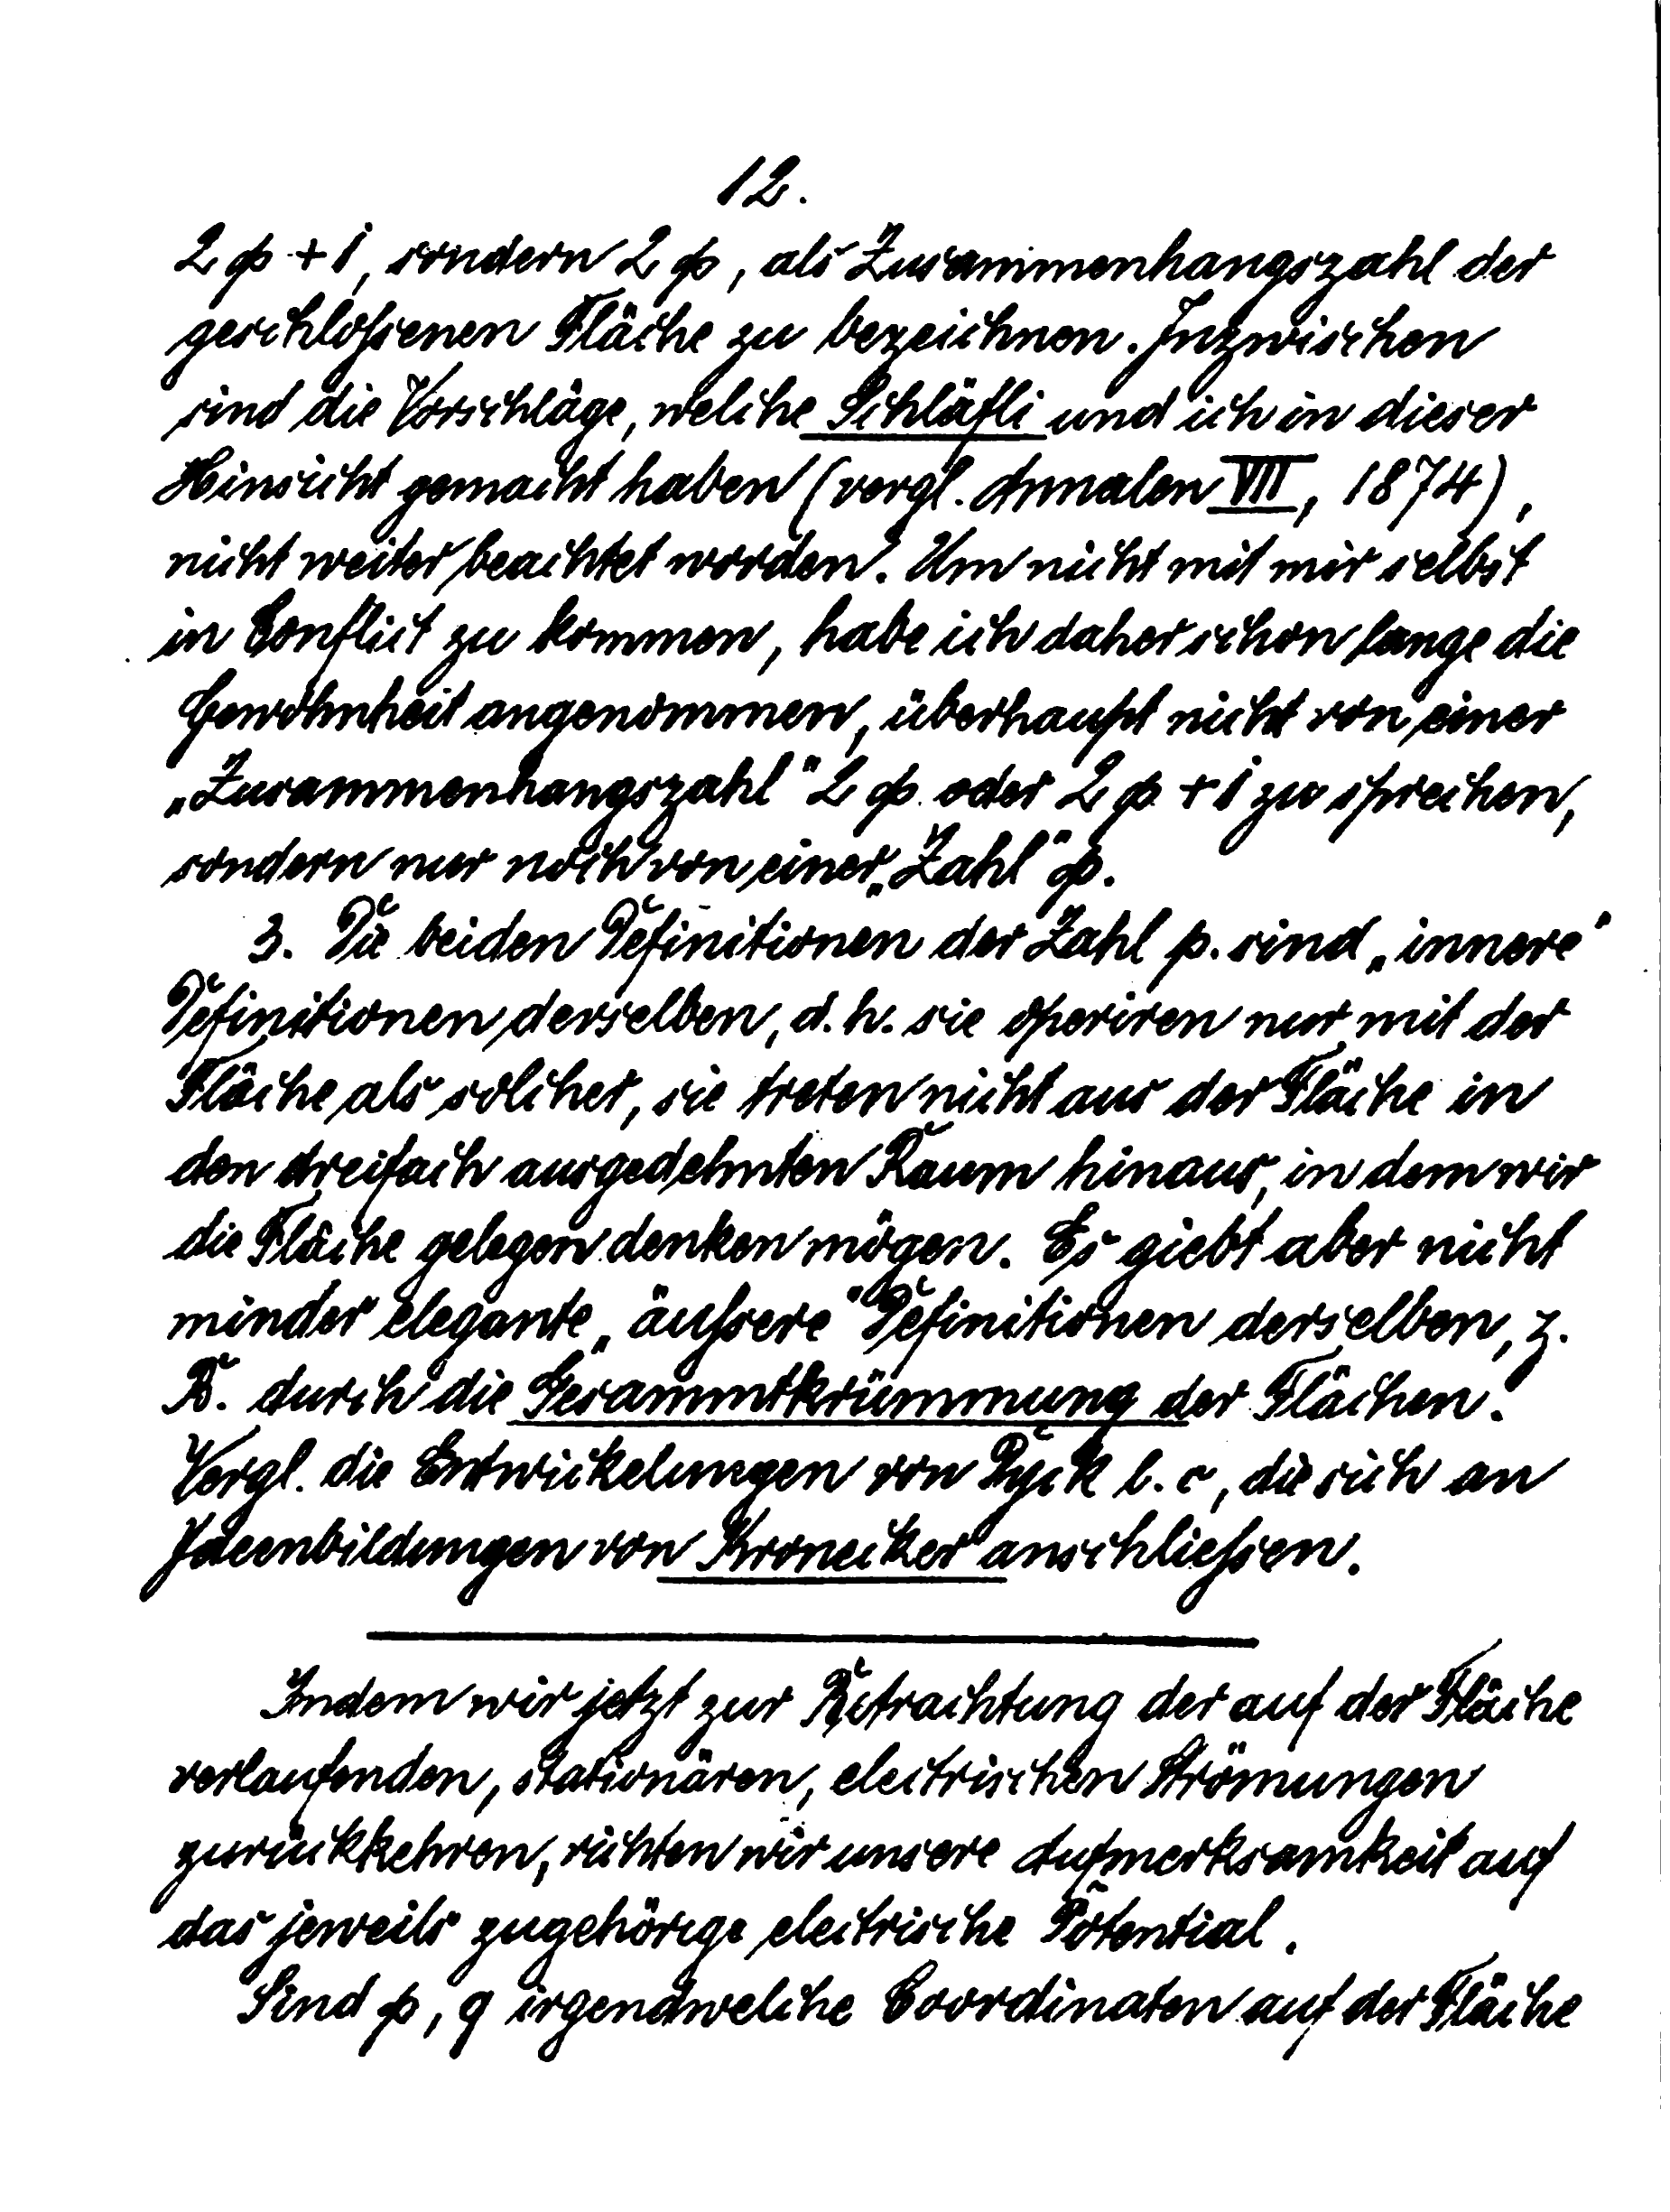 12.
2 p + 1, sondern 2 p, als Zusammenhangszahl der
geschlossenen Fläche zu bezeichnen. Inzwischen
sind die Vorschläge, welche Schläfli und ich in dieser
Hinsicht gemacht haben (vergl. Annalen VII, 1874),
nicht weiter beachtet worden. Um nicht mit mir selbst
in Conflict zu kommen, habe ich daher schon lange die
Gewohnheit angenommen, überhaupt nicht von einer
„Zusammenhangszahl" 2 p oder 2 p + 1 zu sprechen,
sondern nur noch von einer „Zahl" p.
3. Die beiden Definitionen der Zahl p. sind „innere"
Definitionen derselben, d. h. sie operiren nur mit der
Fläche als solcher, sie treten nicht aus der Fläche in
den dreifach ausgedehnten Raum hinaus, in dem wir
die Fläche gelegen denken mögen. Es giebt aber nicht
minder elegante „äussere" Definitionen derselben, z.
B. durch die Gesammtkrümmung der Flächen.
Vergl. die Entwickelungen von Dyck l. c, die sich an
Ideenbildungen von Kronecker anschliessen.
Indem wir jetzt zur Betrachtung der auf der Fläche
verlaufenden, stationären, electrischen Strömungen
zurückkehren, richten wir unsere Aufmerksamkeit auf
das jeweils zugehörige electrische Potential.
Sind p, q irgendwelche Coordinaten auf der Fläche